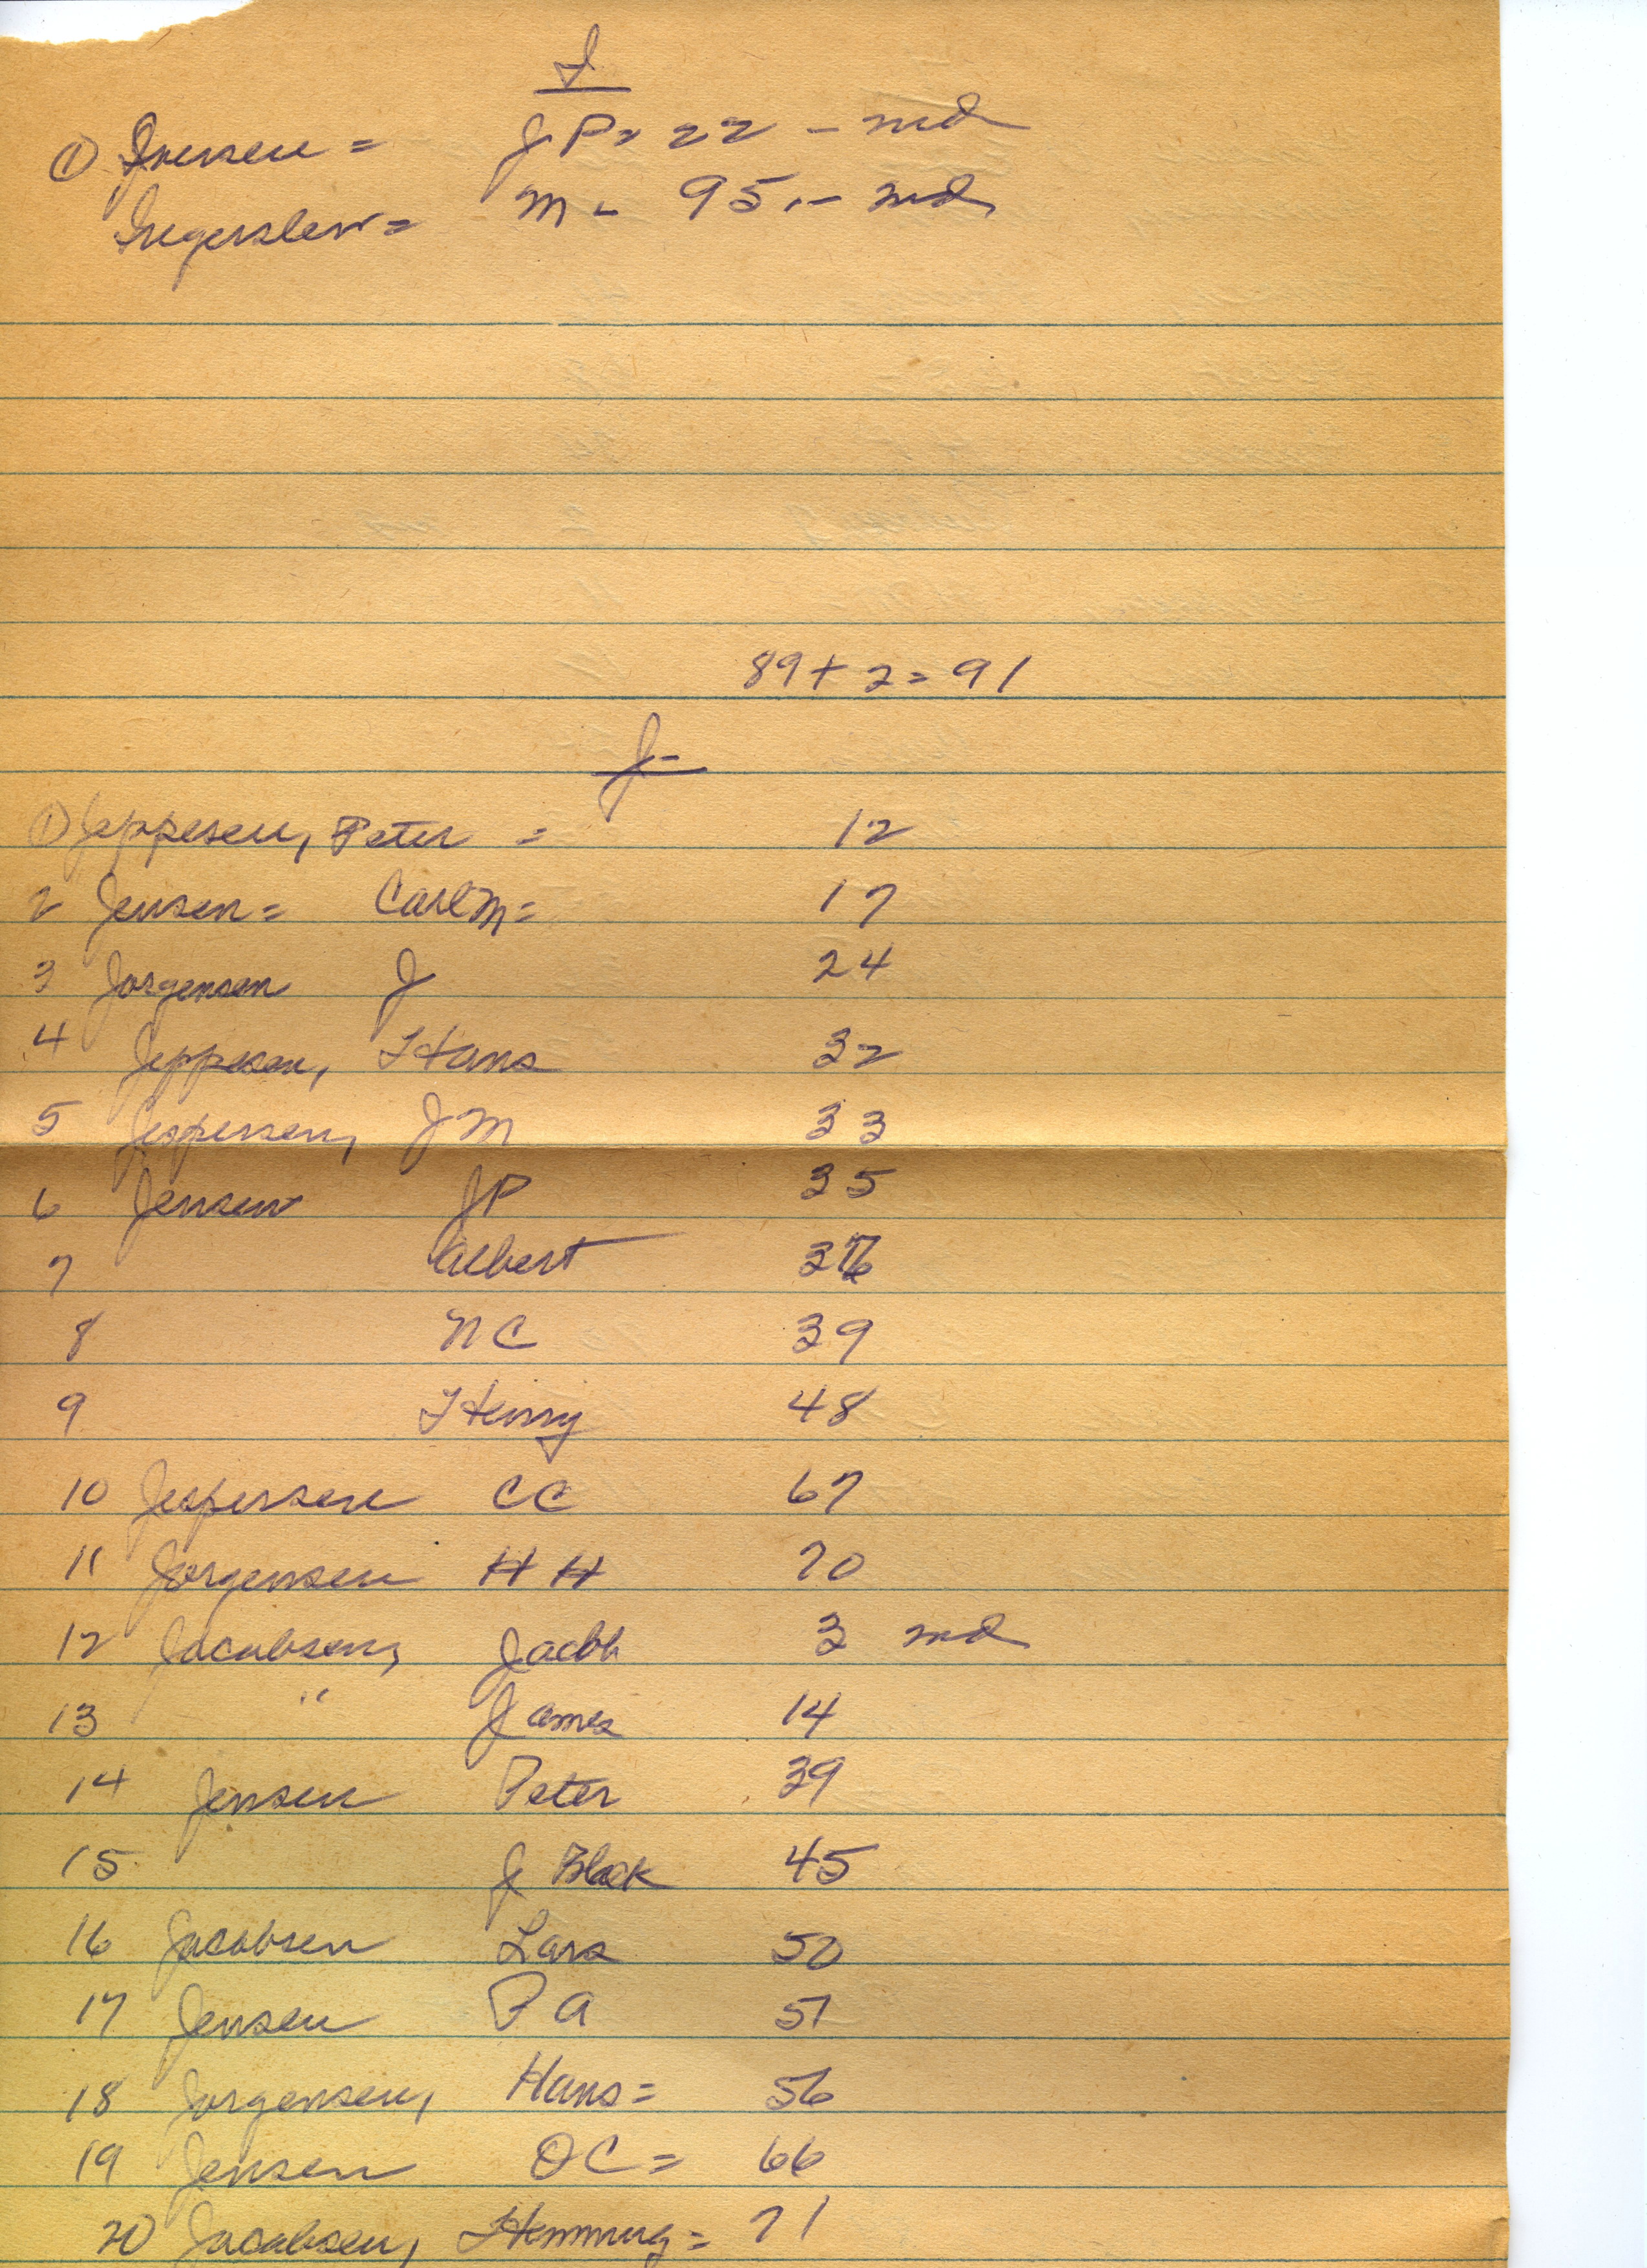 I
① Iversen = JP= 22 - md
Ingerslew = M - 95 - md
89 + 2 = 91
J-
① Jeppesen, Peter = 12
2 Jensen = Carl M = 17
3 Jorgensen J 24
4 Jeppesen, Hans 32
5 Jespersen, JM 33
6 Jensen JP 35
7 Albert 36
8 NC 39
9 Henry 48
10 Jespersen CC 67
11 Jorgensen HH 70
12 Jacobsen, Jacob 3 md
13 " James 14
14 Jensen Peter 39
15 J Black 45
16 Jacobsen Lars 50
17 Jensen PA 51
18 Jorgensen, Hans = 56
19 Jensen OC = 66
20 Jacobsen, Hemming = 71